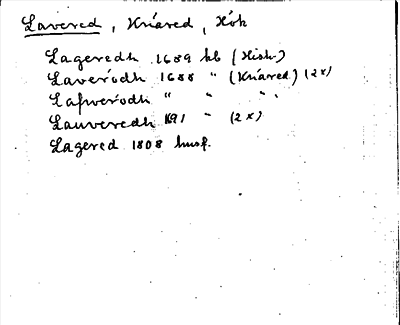 Lavered, Knäred, Hök
Lageredh 1689 kb (Hish)
Laverödh 1688 " (Knäred) (2x)
Lafwerödh " " " "
Lauveredh 1691 " (2x)
Lagered 1808 husf.